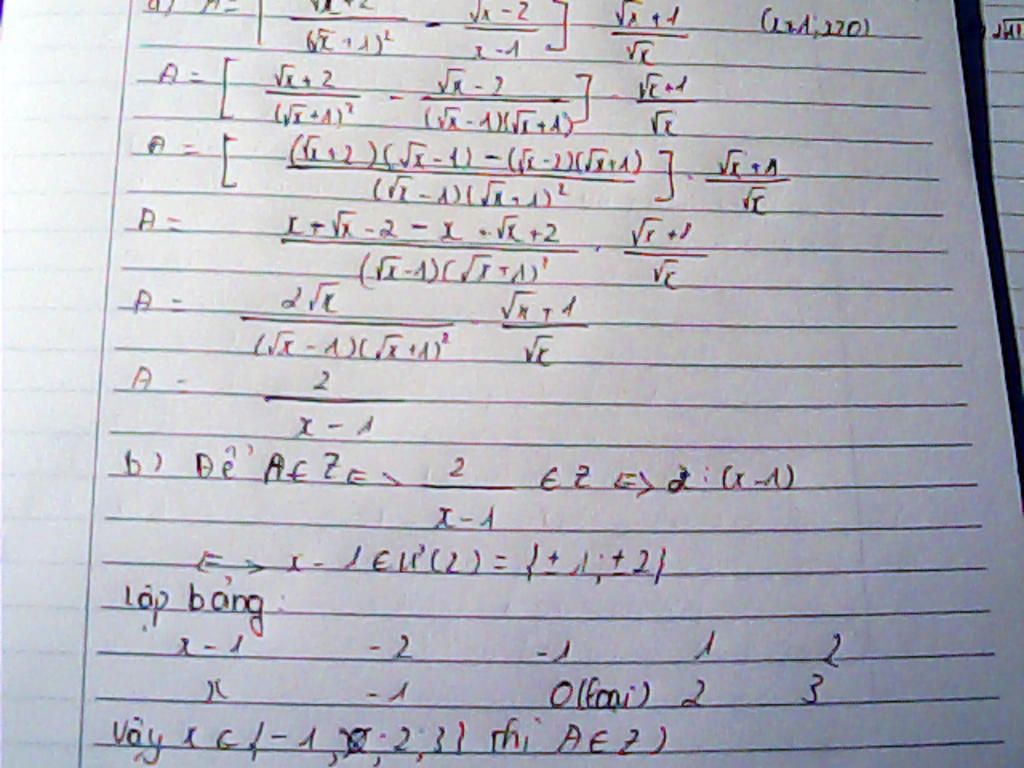 a) A = [ (√x+2)/(√x+1)² - (√x-2)/(x-1) ] · (√x+1)/√x
A = [ (√x+2)/(√x+1)² - (√x-2)/((√x-1)(√x+1)) ] · (√x+1)/√x
A = [ ((√x+2)(√x-1)-(√x-2)(√x+1))/((√x-1)(√x+1)²) ] · (√x+1)/√x
A = (x+√x-2-x+√x+2)/((√x-1)(√x+1)²) · (√x+1)/√x
A = 2√x/((√x-1)(√x+1)²) · (√x+1)/√x
A = 2/(x-1)
b) Để A∈Z <=> 2/(x-1) ∈ Z <=> 2⋮(x-1)
<=> x-1∈Ư(2) = {±1;±2}
Lập bảng:
x-1 -2 -1 1 2
x -1 0(loại) 2 3
Vậy x∈{-1; 2;3} thì A∈Z)